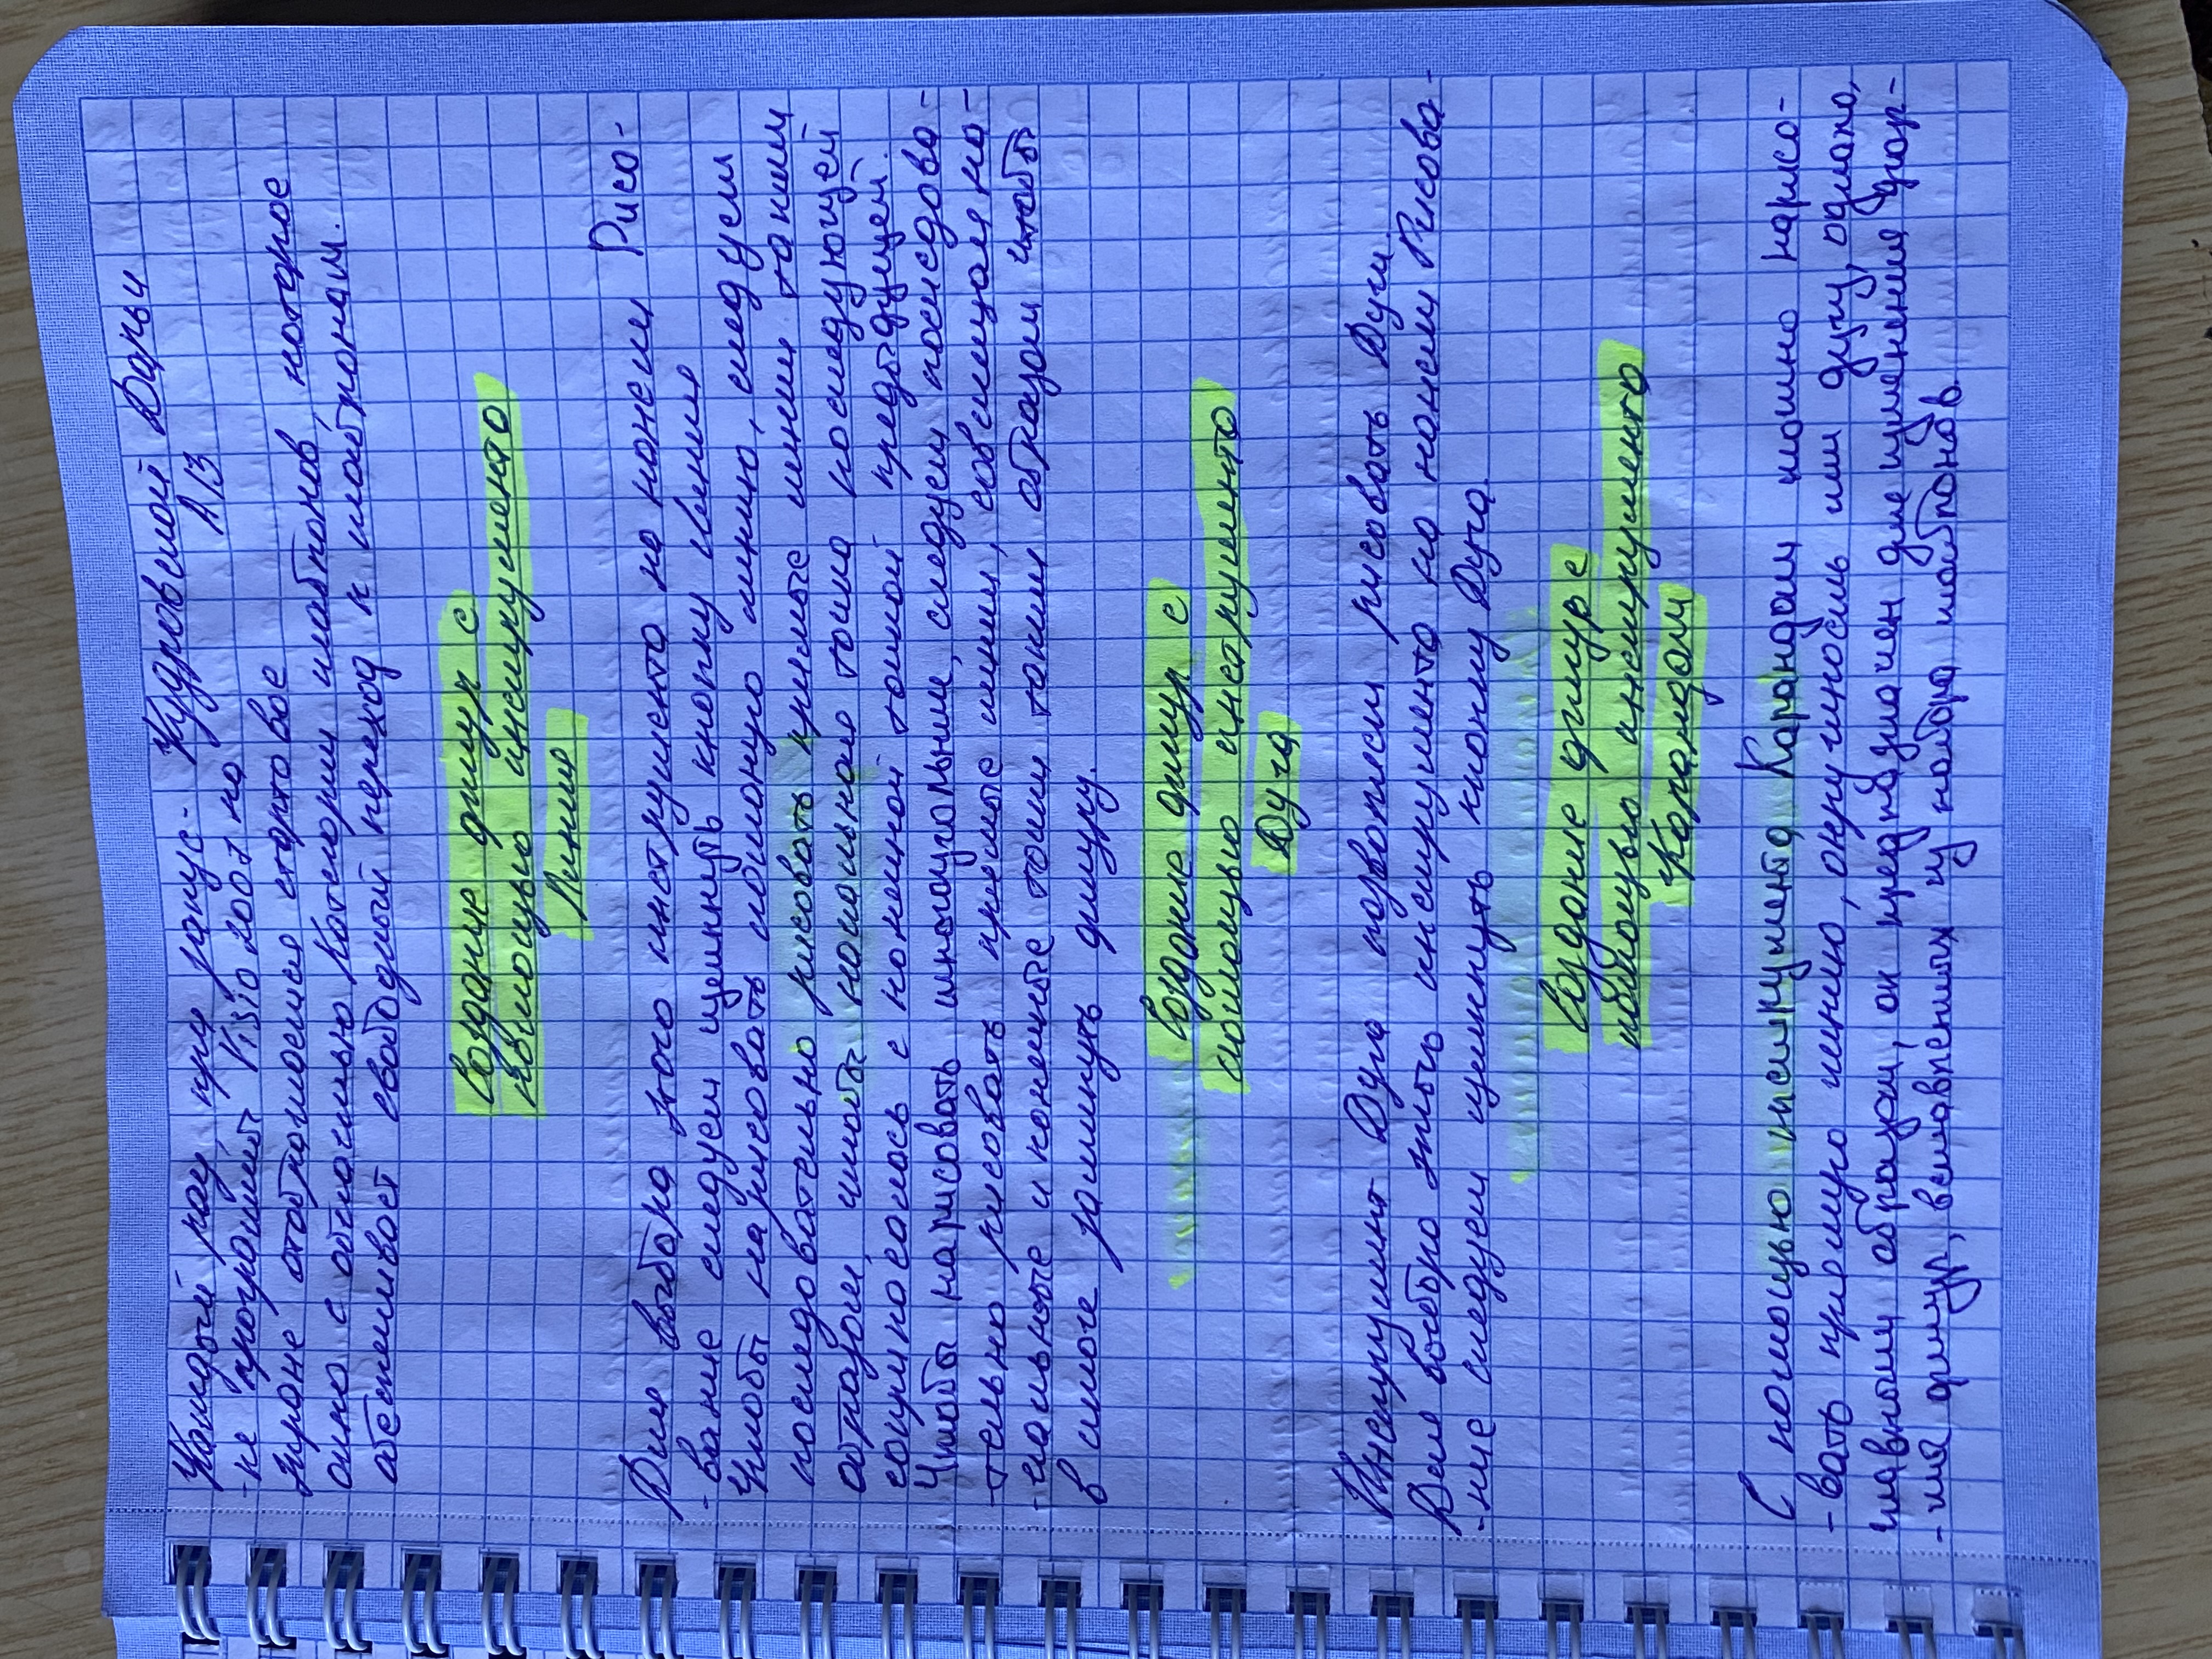 Кудровской Дарьи
А13
Каждый раз при запус-
-ке программы Visio 2007 на
экране отображается стартовое
окно с областью Категории шаблонов, которое
обеспечивает свободный переход к шаблонам.
Создание фигур с
помощью инструмента
Линия
Для выбора этого инструмента на панели Рисо-
-вание следует щелкнуть кнопку Линия
Чтобы нарисовать ломаную линию, следует
последовательно рисовать прямые линии таким
образом, чтобы начальная точка последующей
соприкасалась с конечной точкой предыдущей.
Чтобы нарисовать многоугольник, следует последова-
-тельно рисовать прямые линии, совмещая на-
-чальные и конечные точки таким образом чтобы
в итоге замкнуть фигуру.
Создание фигур с
помощью инструмента
Дуга
Инструмент Дуга позволяет рисовать Дуги.
Для выбора этого инструмента на панели Рисова-
-ние следует щелкнуть кнопку Дуга
Создание фигур с
помощью инструмента
Карандаш
С помощью инструмента Карандаш можно нарисо-
-вать прямую линию, окружность или дугу, однако,
главным образом, он предназначен для изменения фор-
-мы фигур, вставленных из набора шаблонов.